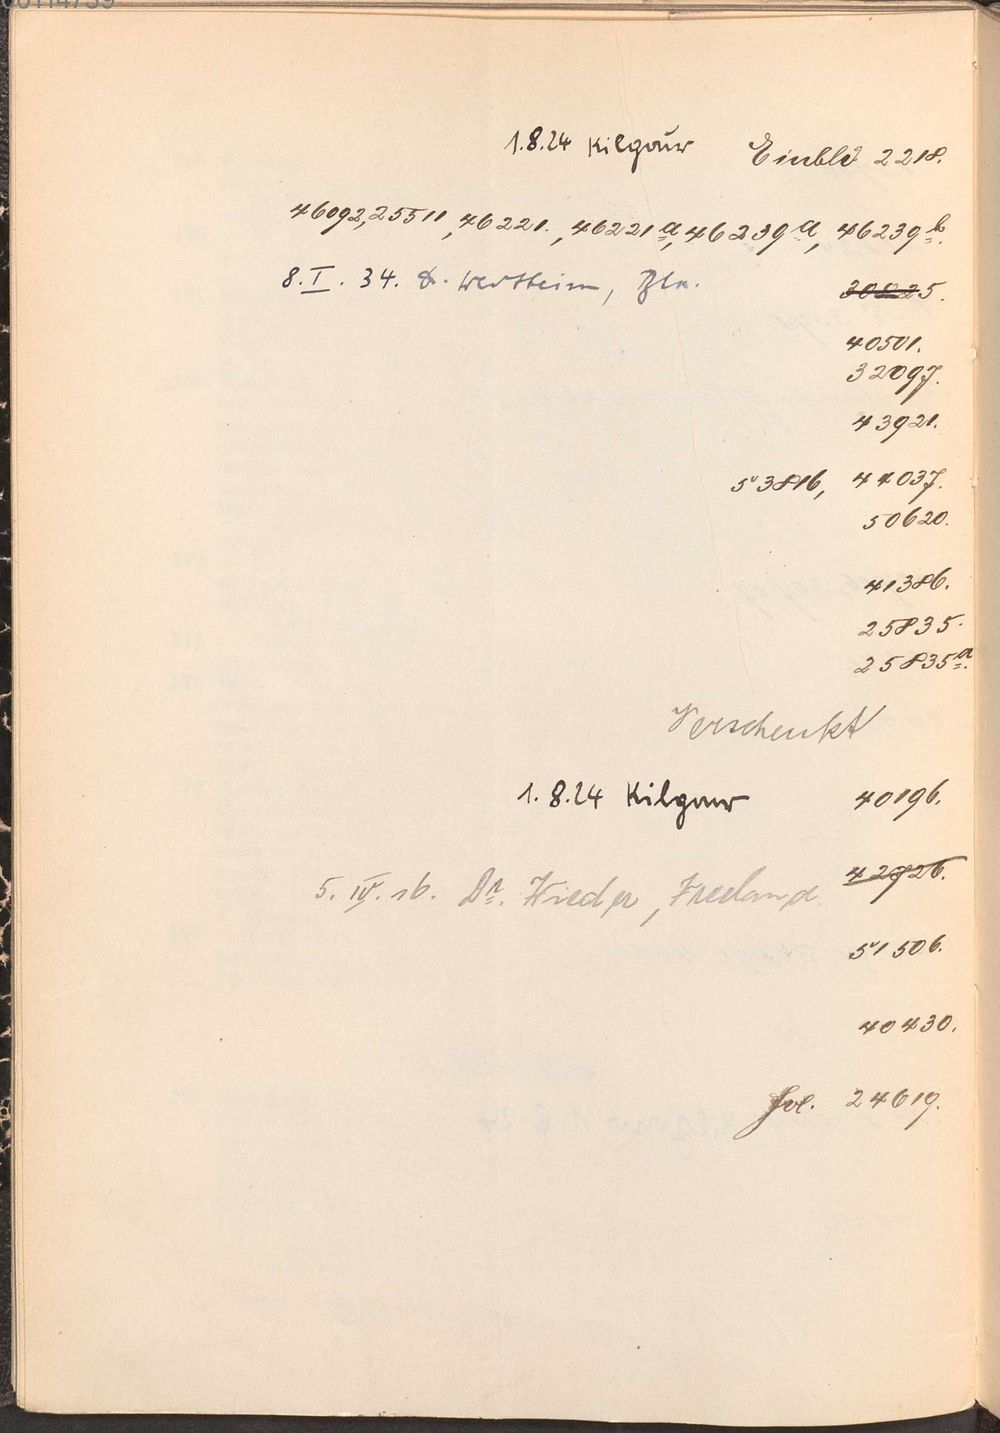 00114739
1.8.24 Kilgour Einbld 2218.
46092, 25511, 46221., 46221a, 46239a, 46239b.
8.I.34. Wertheim, Bln. 30825.
40501.
32097.
43921.
53816, 44037.
50620.
41386.
25835.
25835a.
Verschenkt
1.8.24 Kilgour 40196.
5.IV.26. Dr. Wieder, Freeland. 42726.
51506.
40430.
fol. 24619.